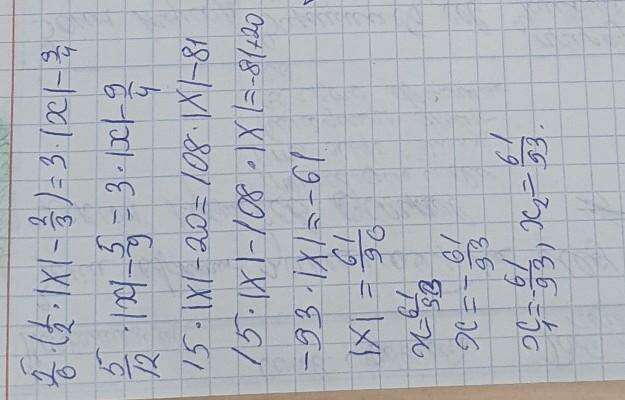 5/6·(1/2·|x|-2/3)=3·|x|-9/4
5/12·|x|-5/9=3·|x|-9/4
15·|x|-20=108·|x|-81
15·|x|-108·|x|=-81+20
-93·|x|=-61
|x|=61/96
x=61/93
x=-61/93
x₁=-61/93, x₂=61/93.